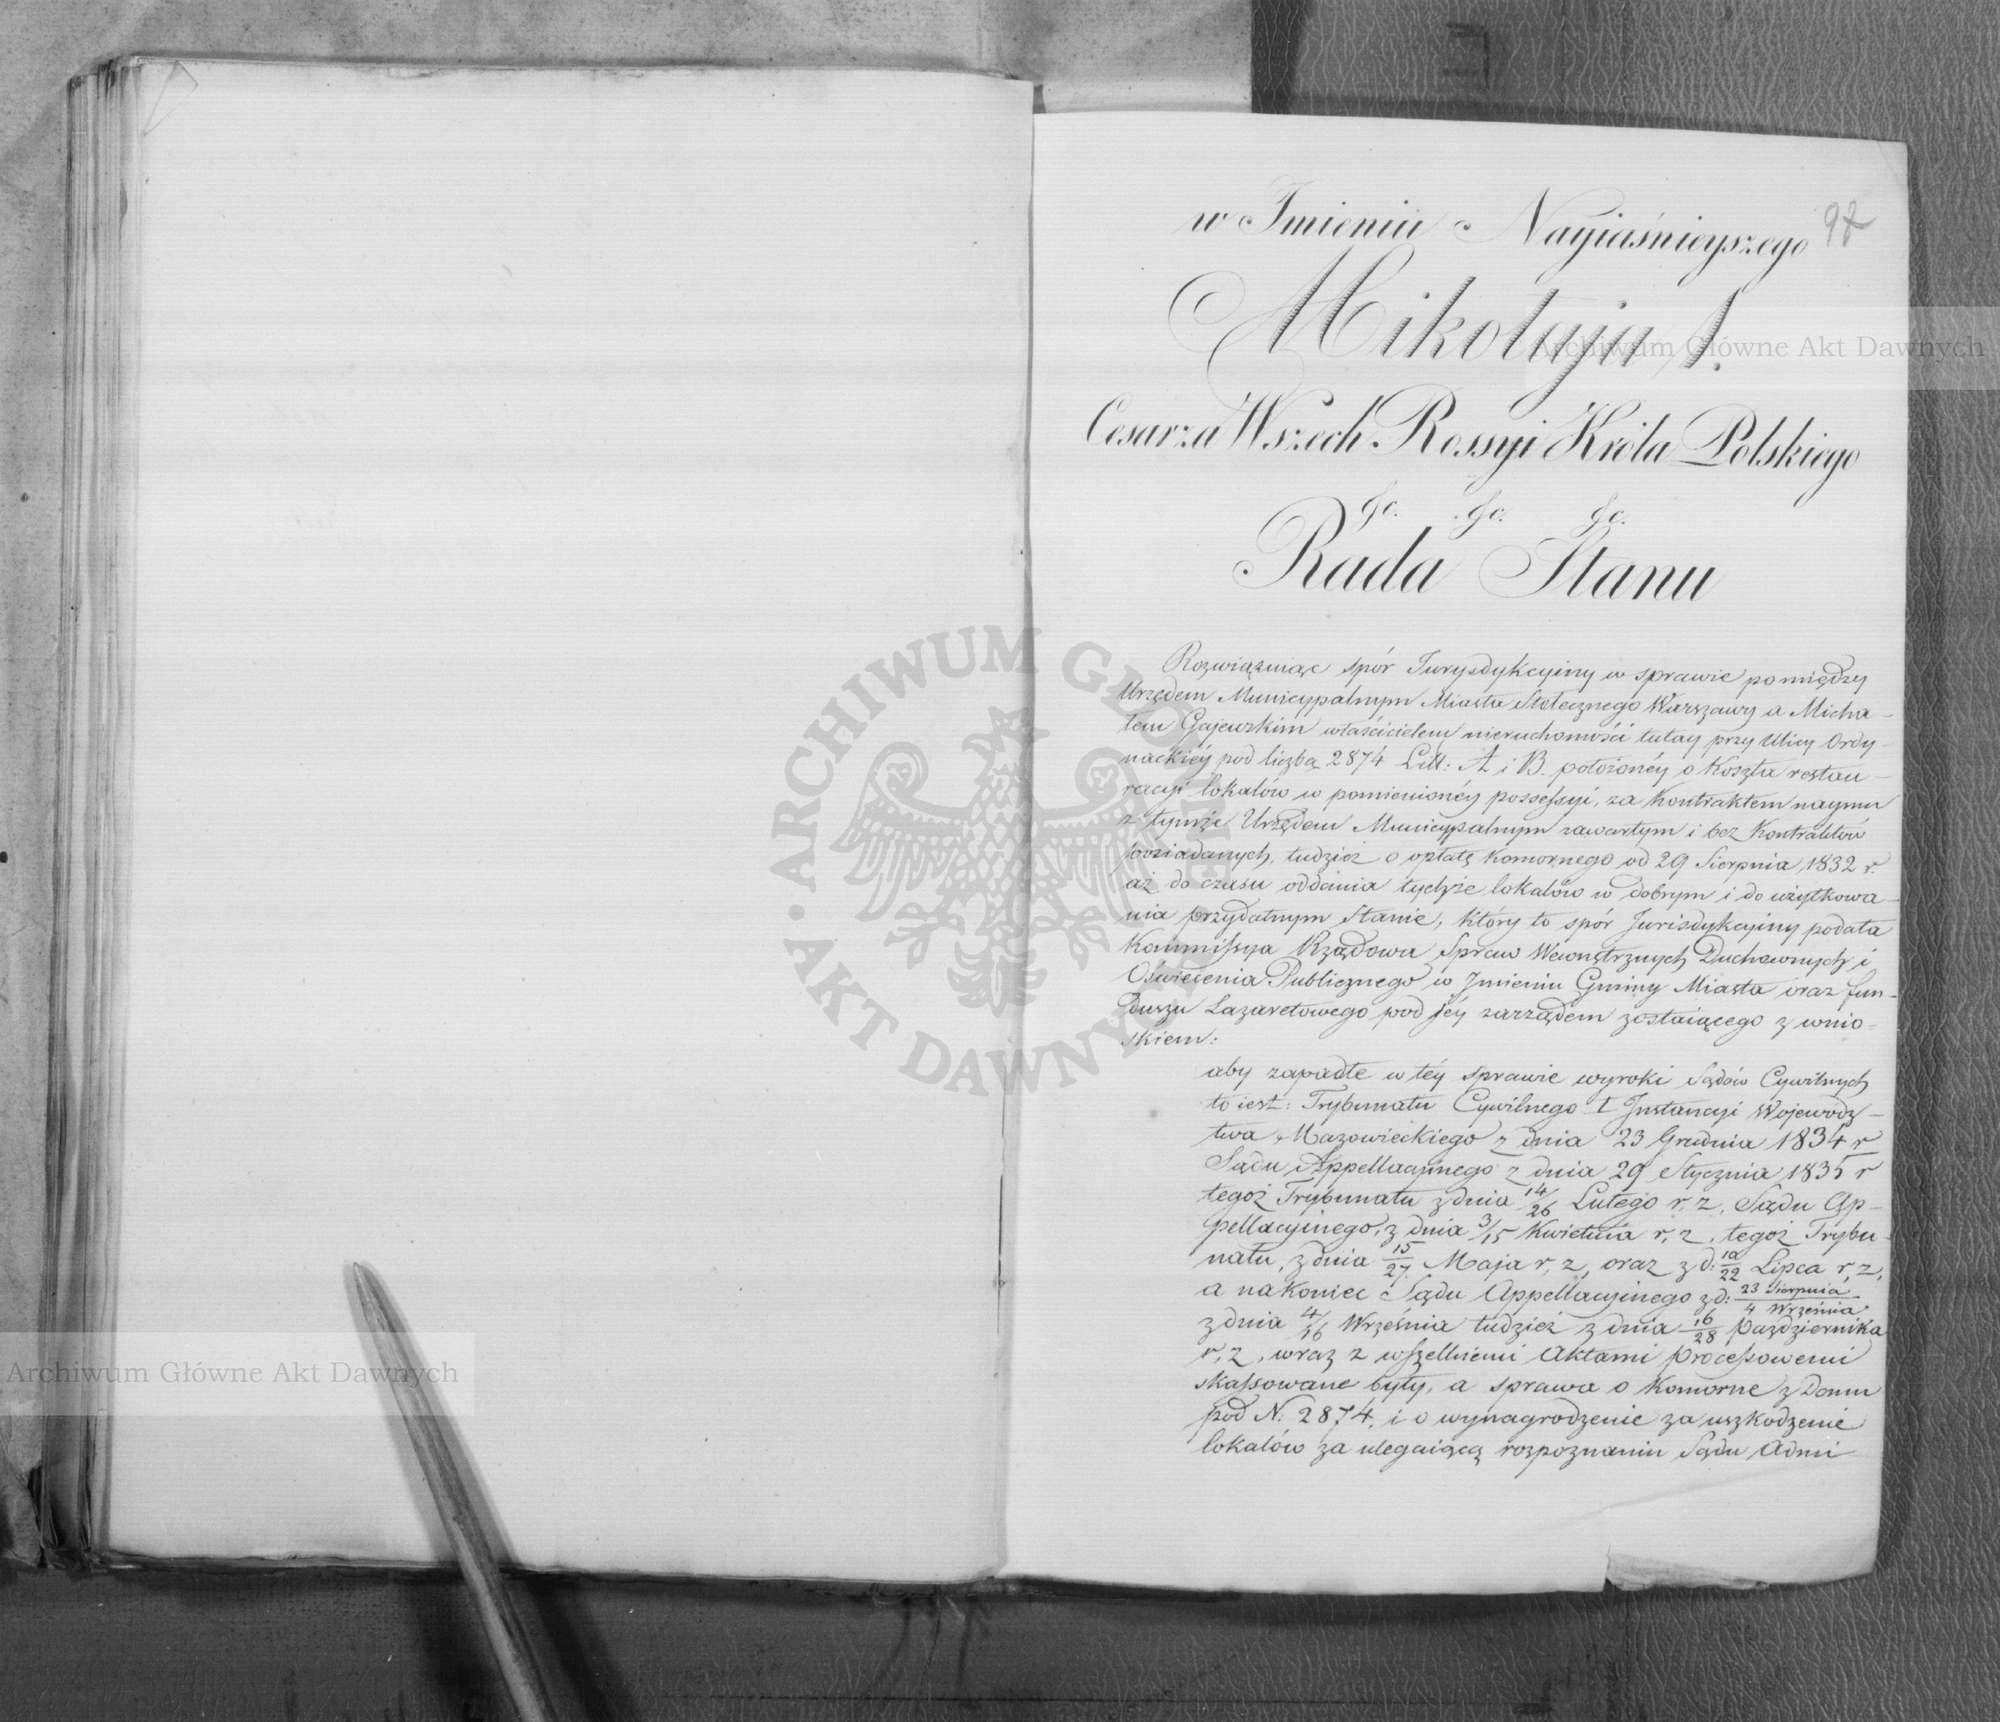 97
w Imieniu Nayiaśnieyszego
Mikołaja I.
Cesarza Wszech Rossyi Króla Polskiego
&c. &c. &c.
Rada Stanu
Rozwiązuiąc spór Jurysdykcyiny w sprawie pomiędzy
Urzędem Municypalnym Miasta Stołecznego Warszawy a Micha-
łem Gajewskim właścicielem nieruchomości tutay przy Ulicy Ordy-
nackiéy pod liczbą 2874 Litt: A i B. położonéy o Koszta restau-
racyi lokalów w pomienionéy possessyi, za Kontraktem naymu
z tymże Urzędem Municypalnym zawartym i bez Kontraktów
posiadanych, tudzież o opłatę Komornego od 29 Sierpnia 1832 r.
aż do czasu oddania tychże lokalów w dobrym i do użytkowa-
nia przydatnym Stanie, który to spór Jurisdykcyiny podała
Kommissya Rządowa Spraw Wewnętrznych Duchownych i
Oświecenia Publicznego w Jmieniu Gminy Miasta oraz fun-
duszu Lazaretowego pod jéy zarządem zostaiącego z wnio-
skiem:
aby zapadłe w téy sprawie wyroki Sądów Cywilnych
to iest: Trybunału Cywilnego I Jnstancyi Wojewódz-
twa Mazowieckiego z dnia 23 Grudnia 1834 r
Sądu Appellacyinego z dnia 29 Stycznia 1835 r
tegoż Trybunału z dnia 14/26 Lutego r, z, Sądu Ap-
pellacyinego, z dnia 3/15 Kwietnia r, z, tegoż Trybu-
nału, z dnia 15/27. Maja r, z, oraz z d: 10/22 Lipca r, z,
a nakoniec Sądu Appellacyinego z d: 23 Sierpnia/4 Września
z dnia 4/16 Września tudzież z dnia 16/28 Października
r, z, wraz z wszelkiemi Aktami processowemi
skassowane były, a sprawa o Komorne z Domu
pod N: 2874, i o wynagrodzenie za uszkodzenie
lokalów za ulegaiącą rozpoznaniu Sądu Admi-
Archiwum Główne Akt Dawnych
Archiwum Główne Akt Dawnych
ARCHIWUM GŁÓWNE AKT DAWNYCH